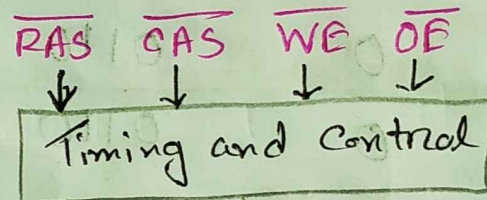 R̅A̅S̅ C̅A̅S̅ W̅E̅ O̅E̅
Timing and Control